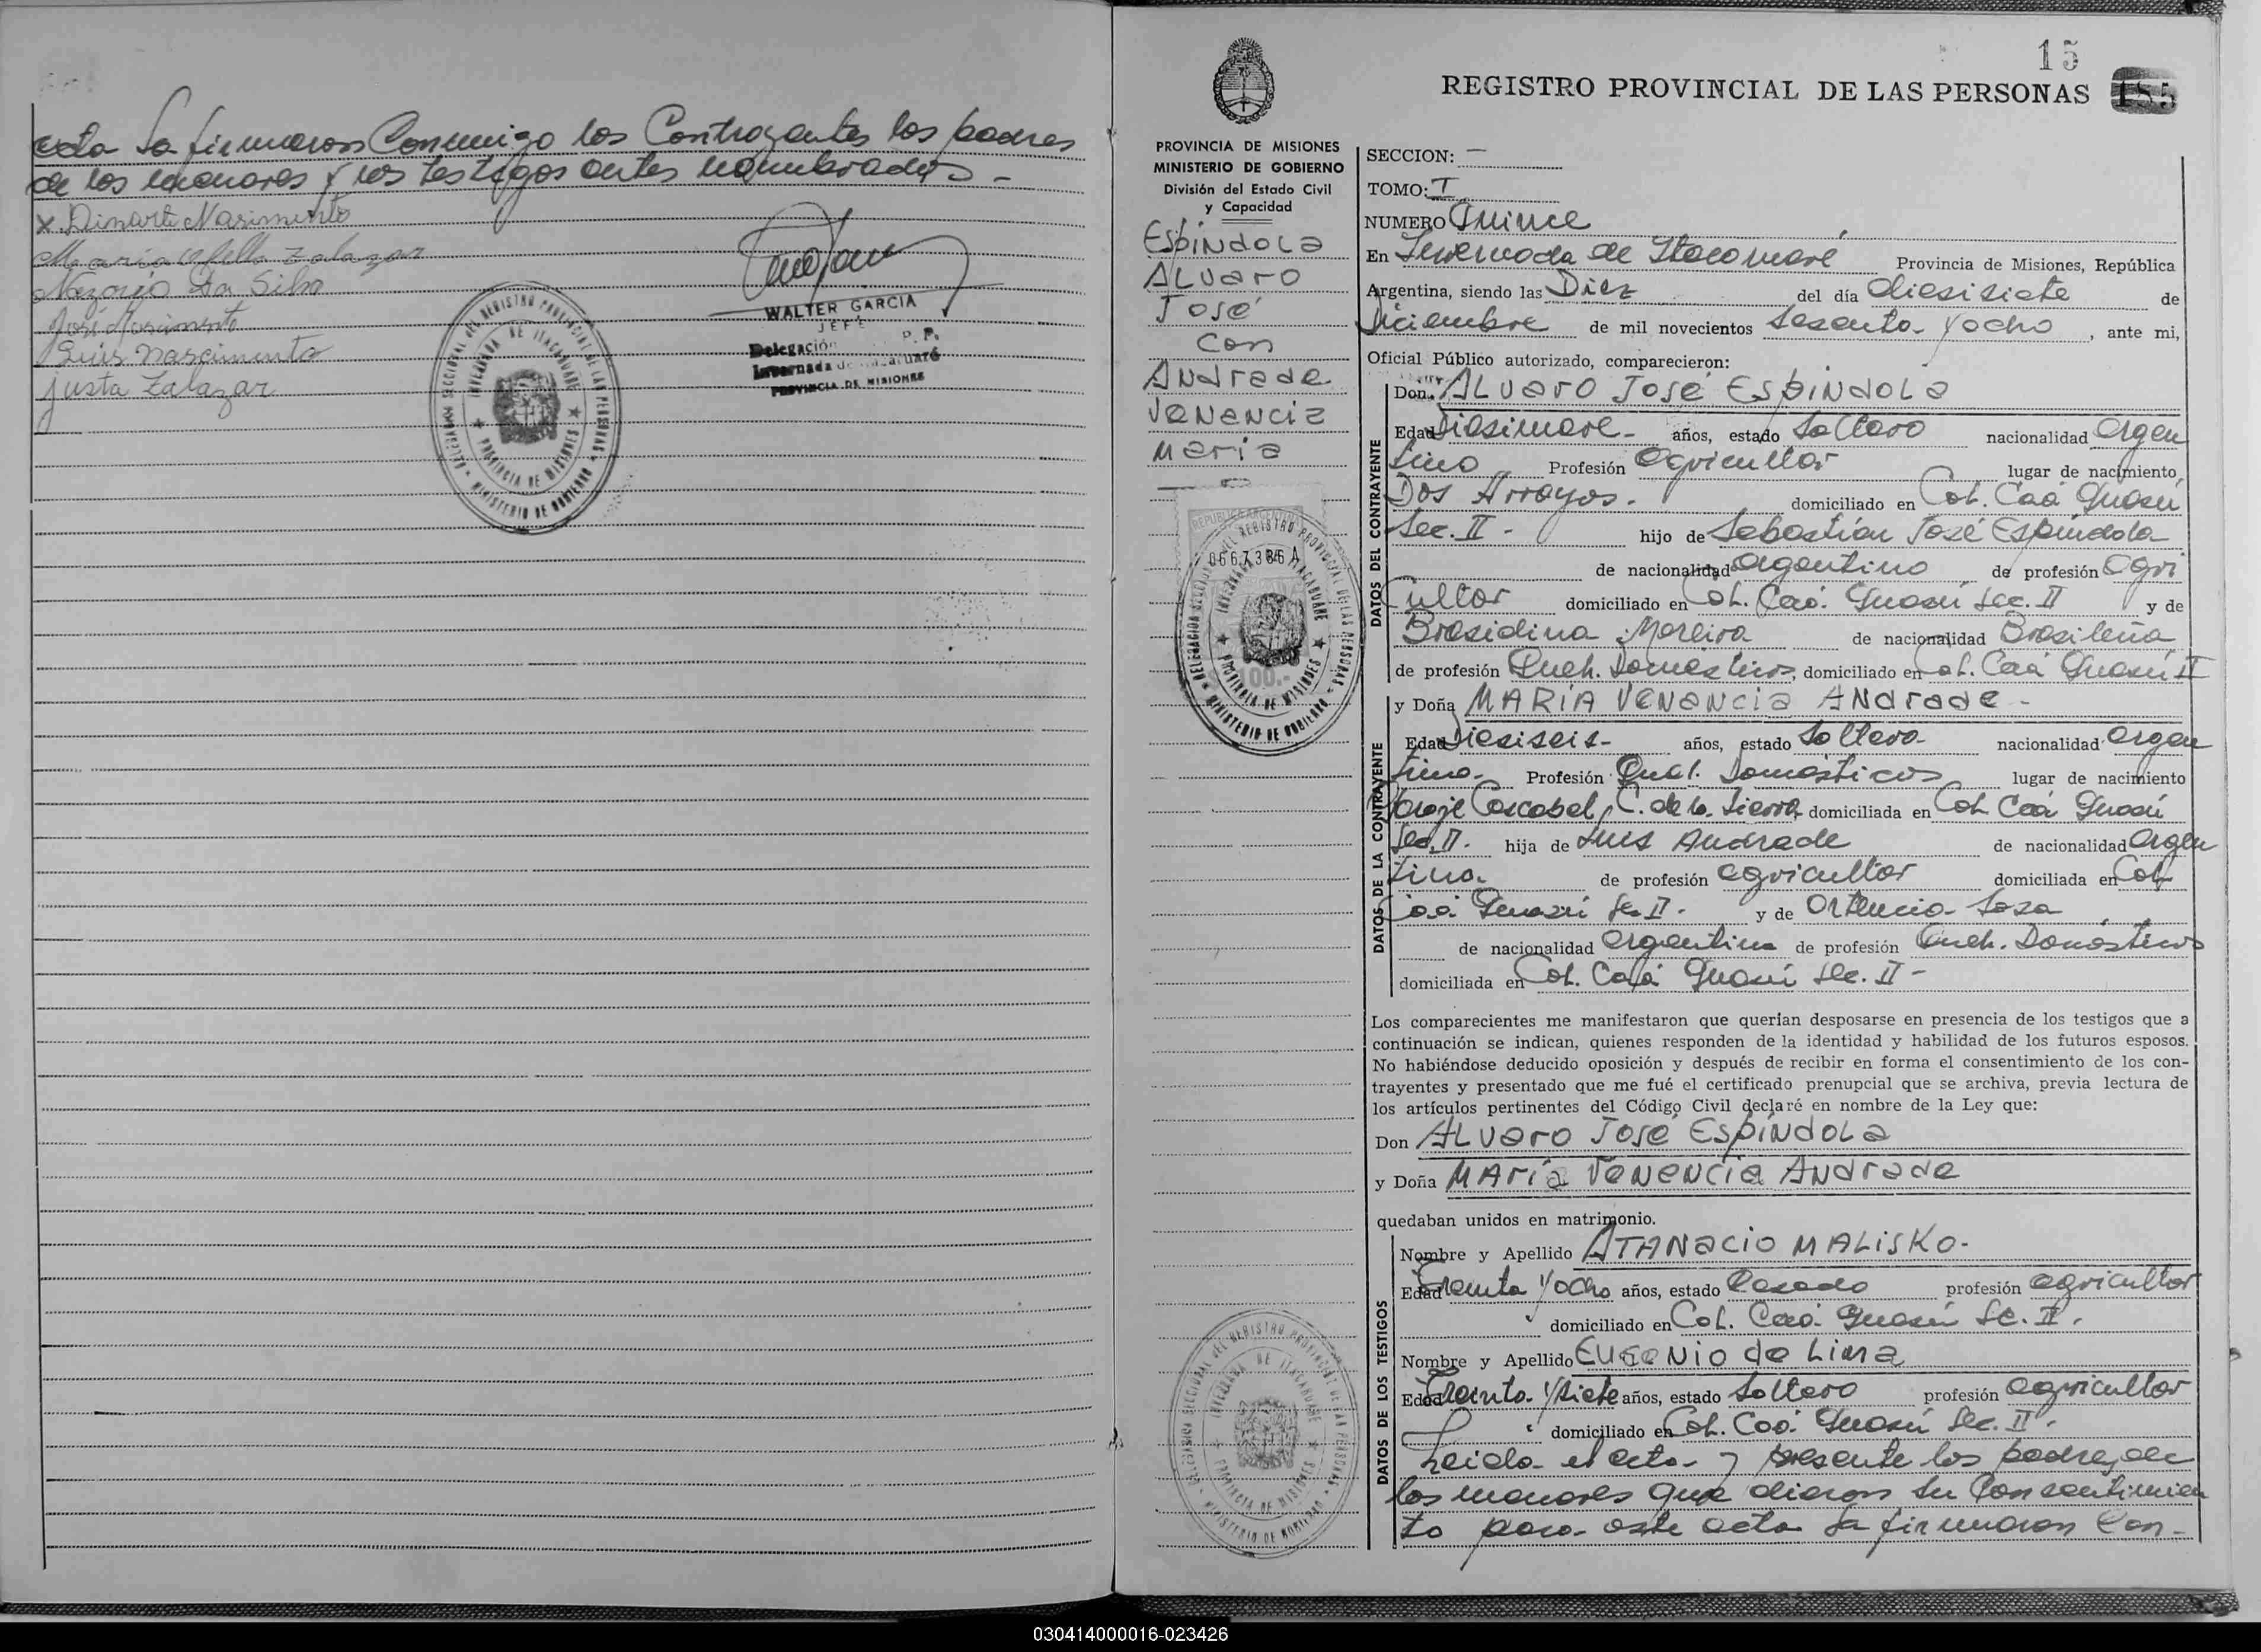 acta la firmaron Conmigo los Contrayentes los padres
de los menores y los testigos antes nombrados -
x Dinarte Nasimento
Maria Zalazar
Da Silva
José Nascimento
Luis Nascimento
justa Zalazar
WALTER GARCIA
JEFE
Delegación R. P. P.
Invernada de Itacaruaré
PROVINCIA DE MISIONES
DELEGACION SECCIONAL DEL REGISTRO PROVINCIAL DE LAS PERSONAS
INVERNADA DE ITACARUARE
PROVINCIA DE MISIONES
MINISTERIO DE GOBIERNO
15
REGISTRO PROVINCIAL DE LAS PERSONAS 185
PROVINCIA DE MISIONES
MINISTERIO DE GOBIERNO
División del Estado Civil
y Capacidad
Espíndola
Alvaro
José
con
Andrade
Venencia
Maria
REPUBLICA ARGENTINA
0667386 A
100.-
DELEGACION SECCIONAL DEL REGISTRO PROVINCIAL DE LAS PERSONAS
INVERNADA DE ITACARUARE
PROVINCIA DE MISIONES
MINISTERIO DE GOBIERNO
DELEGACION SECCIONAL DEL REGISTRO PROVINCIAL DE LAS PERSONAS
INVERNADA DE ITACARUARE
PROVINCIA DE MISIONES
MINISTERIO DE GOBIERNO
SECCION: —
TOMO: I
NUMERO Quince
En Invernada de Itacaruaré Provincia de Misiones, República
Argentina, siendo las Diez del día diesisiete de
Diciembre de mil novecientos Sesenta y ocho, ante mi,
Oficial Público autorizado, comparecieron:
DATOS DEL CONTRAYENTE
Don ALVARO José ESPINDOLA
Edad Diesinueve - años, estado Soltero nacionalidad Argen
tino Profesión agricultor lugar de nacimiento
Dos Arroyos. domiciliado en Col. Caá Guasú
Sec. II - hijo de Sebastián José Espíndola
de nacionalidad argentino de profesión agri
cultor domiciliado en Col. Caá Guasú Sec. II y de
Brasidina Moreira de nacionalidad Brasileña
de profesión Queh. Domésticos, domiciliado en Col. Caá Guasú II
DATOS DE LA CONTRAYENTE
y Doña MARÍA VENANCIA ANDRADE -
Edad Diesiseis - años, estado Soltera nacionalidad argen
tina. Profesión Queh. Domésticos lugar de nacimiento
Paraje Cascabel, C. de la Sierra domiciliada en Col. Caá Guasú
Sec. II. hija de Luis Andrade de nacionalidad argen
tino. de profesión agricultor domiciliada en Col.
Caá Guasú Sec. II - y de Ortencia Sosa
de nacionalidad argentina de profesión Queh. Domésticos
domiciliada en Col. Caá Guasú Sec. II -
Los comparecientes me manifestaron que querían desposarse en presencia de los testigos que a
continuación se indican, quienes responden de la identidad y habilidad de los futuros esposos.
No habiéndose deducido oposición y después de recibir en forma el consentimiento de los con-
trayentes y presentado que me fué el certificado prenupcial que se archiva, previa lectura de
los artículos pertinentes del Código Civil declaré en nombre de la Ley que:
Don ALVARO JOSÉ ESPÍNDOLA
y Doña MARÍA VENENCIA ANDRADE
quedaban unidos en matrimonio.
DATOS DE LOS TESTIGOS
Nombre y Apellido ATANACIO MALISKO -
Edad Treinta y ocho años, estado Casado profesión agricultor
domiciliado en Col. Caá Guasú Sc. II.
Nombre y Apellido EUGENIO de LIMA
Edad Treinta y siete años, estado Soltero profesión agricultor
domiciliado en Col. Caá Guasú Sec. II.
Leida el acta y presente los padres de
los menores que dieron su Consentimien
to para este acta la firmaron Con -
030414000016-023426